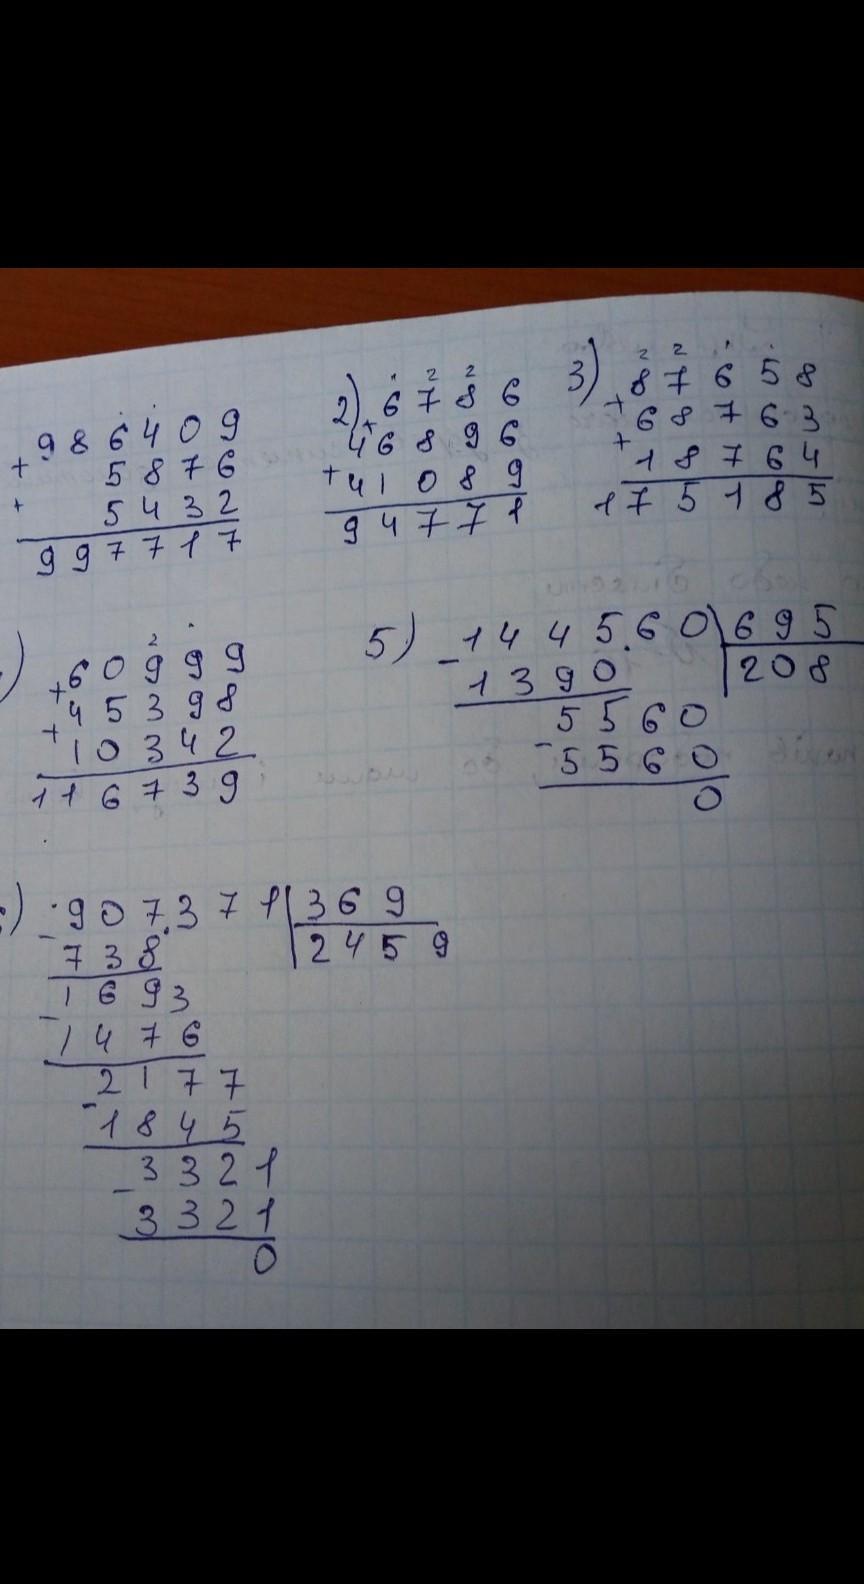 986409
+ 5876
+ 5432
997717
2) 6786
+ 46896
+ 41089
94771
3) 87658
+ 68763
+ 18764
175185
) 60999
+ 45398
+ 10342
116739
5) 144560 695
- 1390 208
5560
- 5560
0
) 907371 369
- 738 2459
1693
- 1476
2177
- 1845
3321
- 3321
0